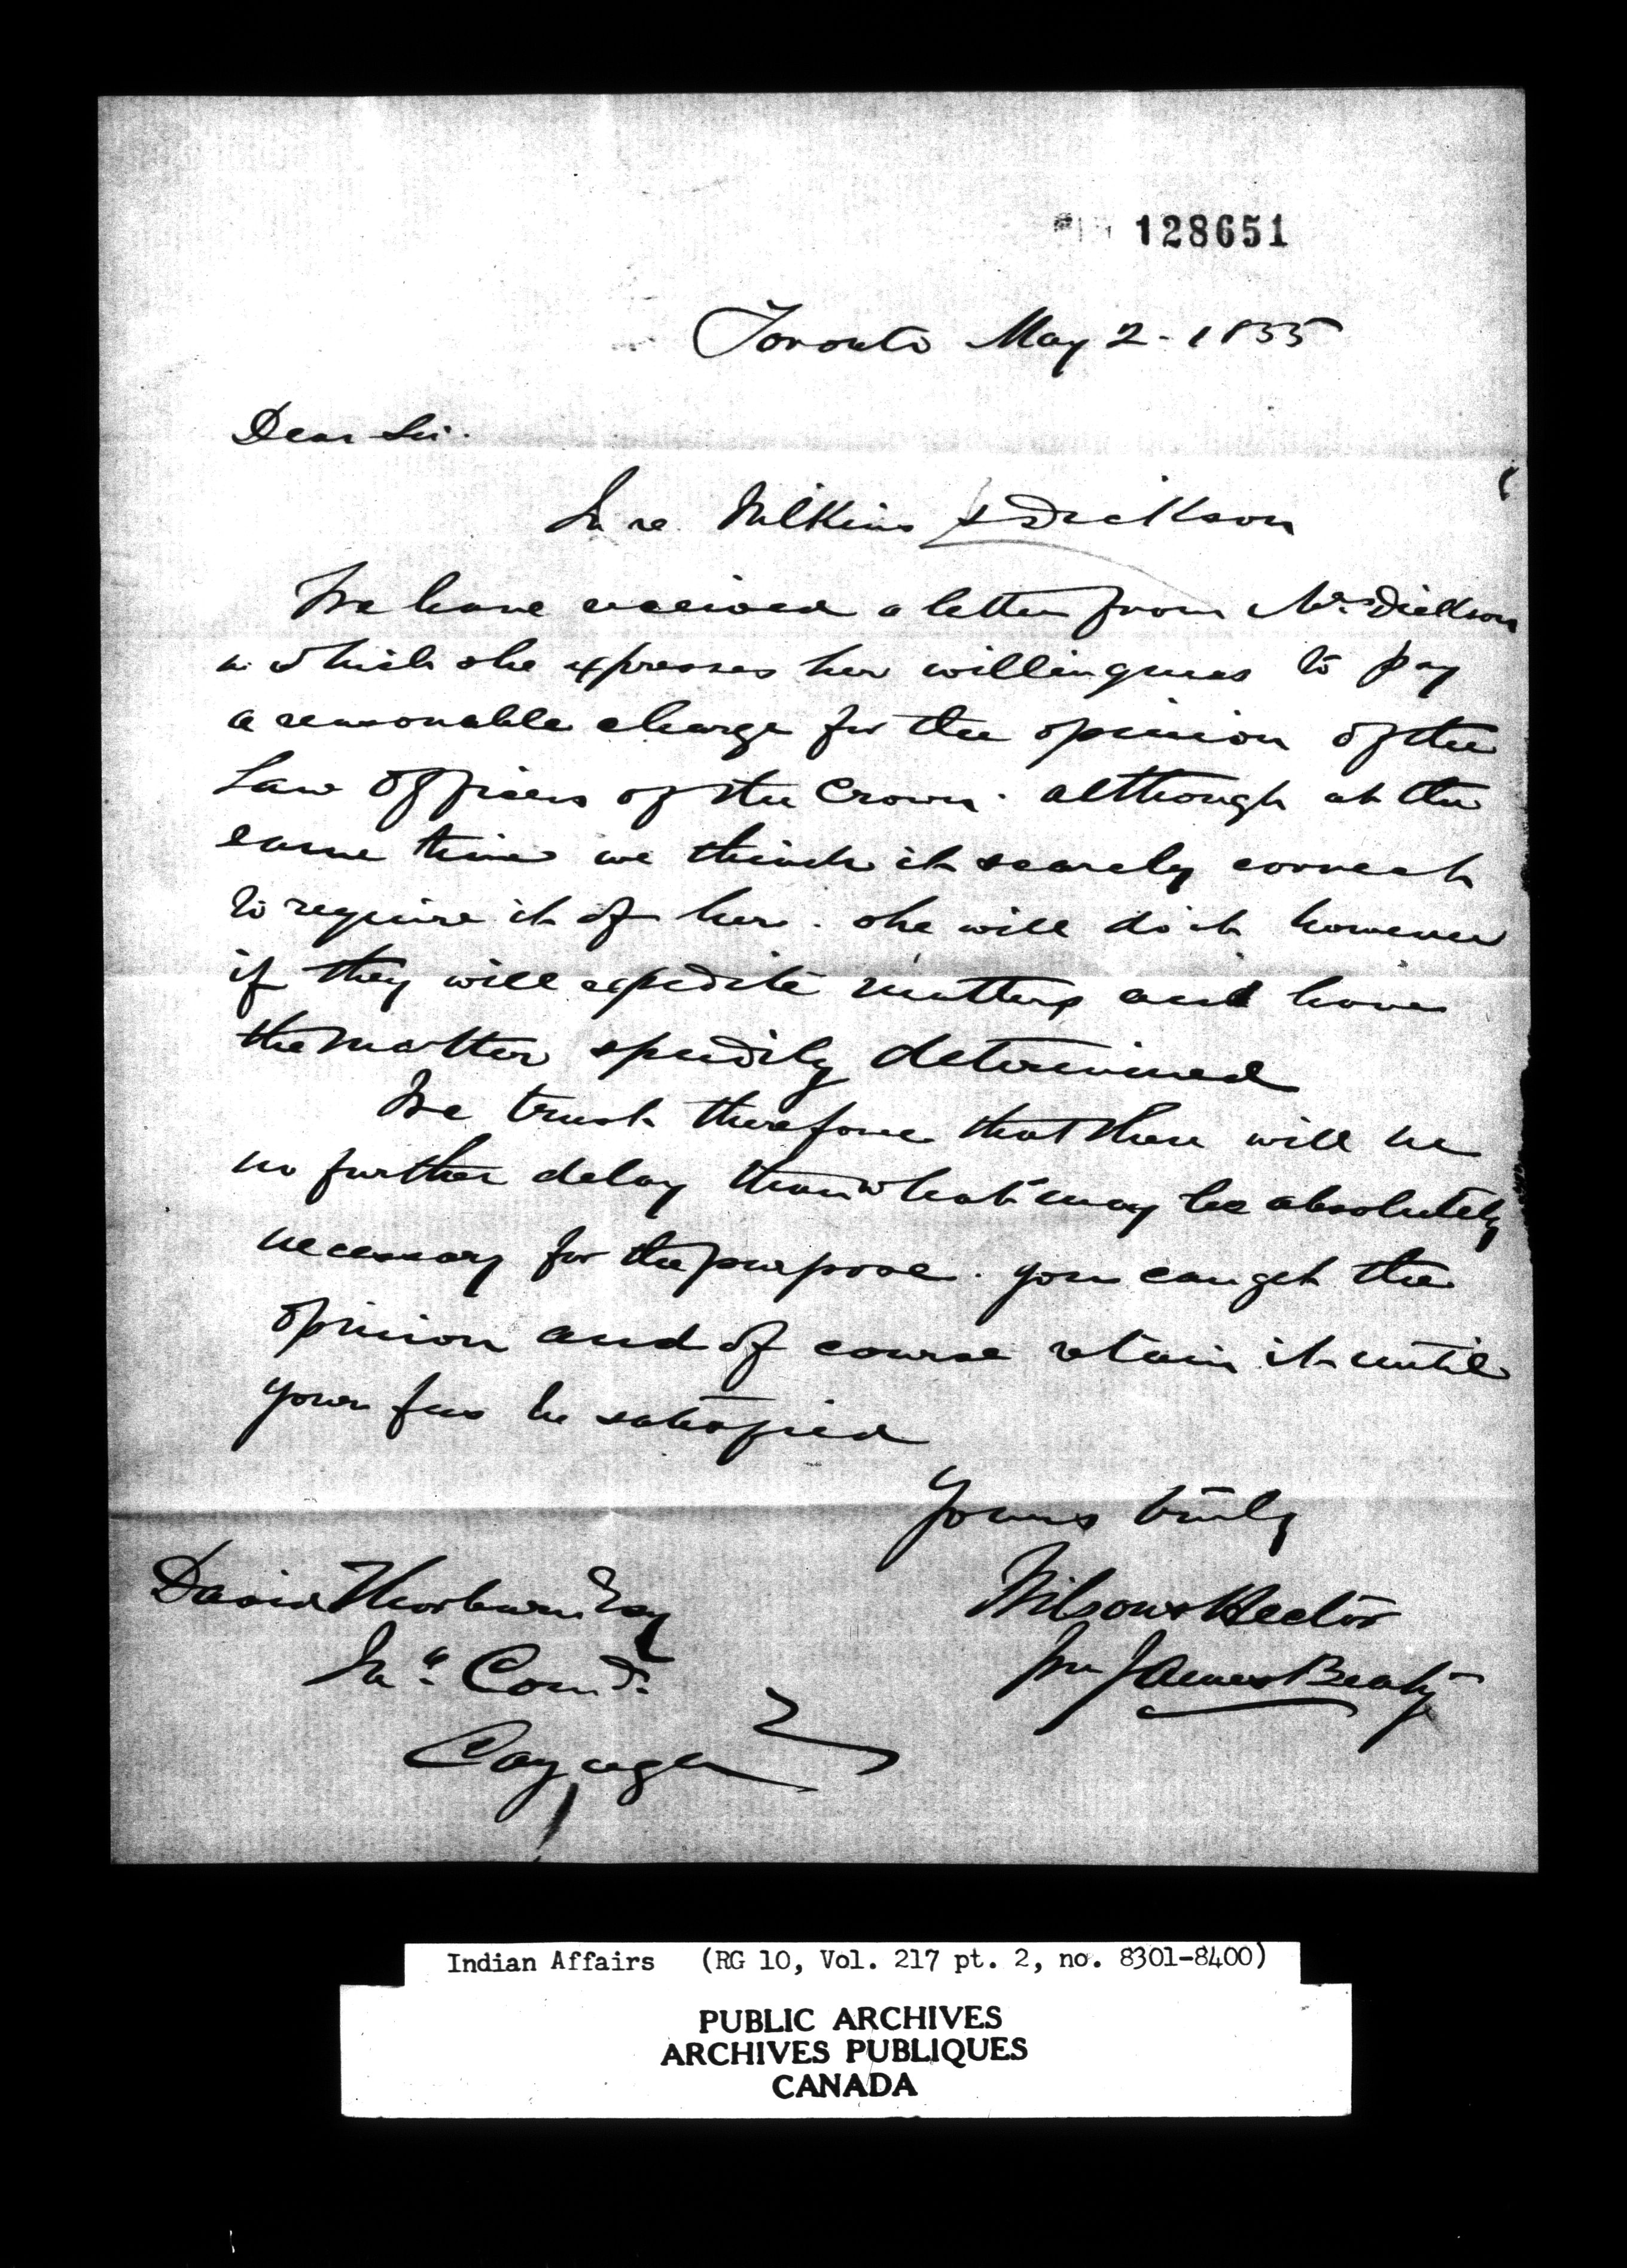 128651
Toronto May 2 - 1855
Dear Sir.
In re. Wilkins & Dickson
We have received a letter from Mrs. Dickson
in which she expresses her willingness to pay
a reasonable charge for the opinion of the
Law Officers of the Crown. although at the
same time we think it scarely correct
to require it of her. she will do it however
if they will expedite matters and have
the matter speedily determined
We trust therefore that there will be
no further delay than what may be absolutely
necessary for the purpose. you can get the
opinion and of course retain it until
your fees be satisfied
Yours truly
Wilson & Hector
James Beaty
David Thorburn Esq
In. Comr.
Cayuga
Indian Affairs (RG 10, Vol. 217 pt. 2, no. 8301-8400)
PUBLIC ARCHIVES
ARCHIVES PUBLIQUES
CANADA